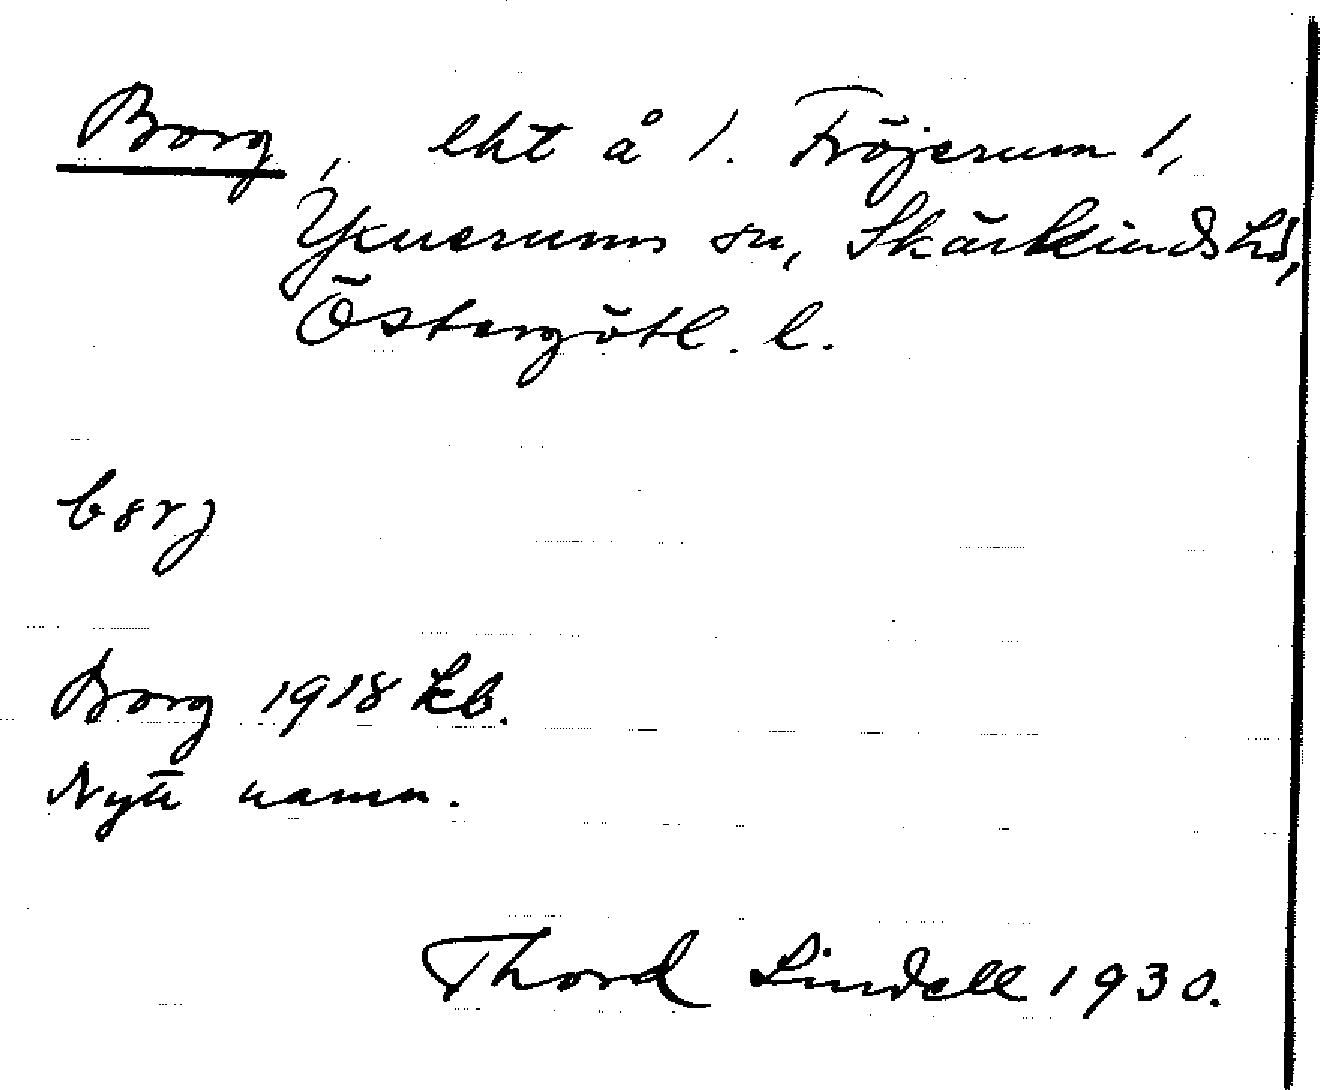 Borg, lht å 1. Fröjerum 1,
Yxnerums sn, Skärkinds hd,
Östergötl. l.
bɔrj
Borg 1918 kb.
Nytt namn.
Thord Lindell 1930.